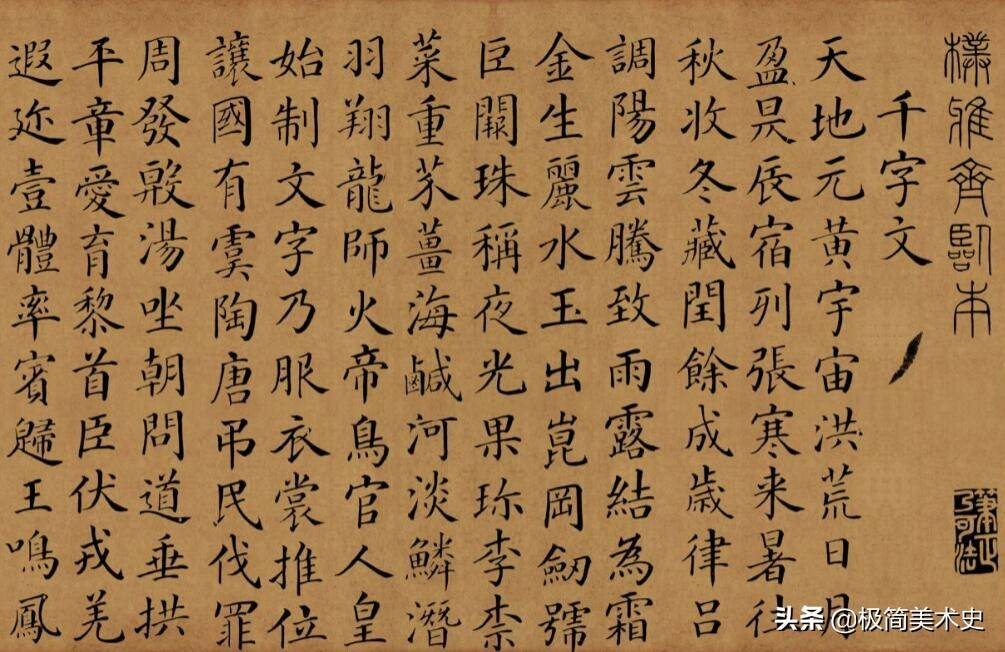 樸雅齋臨本
千字文
天地元黃宇宙洪荒日月
盈昃辰宿列張寒来暑往
秋收冬藏閏餘成歲律呂
調陽雲騰致雨露結為霜
金生麗水玉出崑岡劒號
巨闕珠稱夜光果珎李柰
菜重芥薑海鹹河淡鱗潛
羽翔龍師火帝鳥官人皇
始制文字乃服衣裳推位
讓國有虞陶唐吊民伐罪
周發殷湯坐朝問道垂拱
平章愛育黎首臣伏戎羌
遐迩壹體率賓歸王鳴鳳
头条 @极简美术史